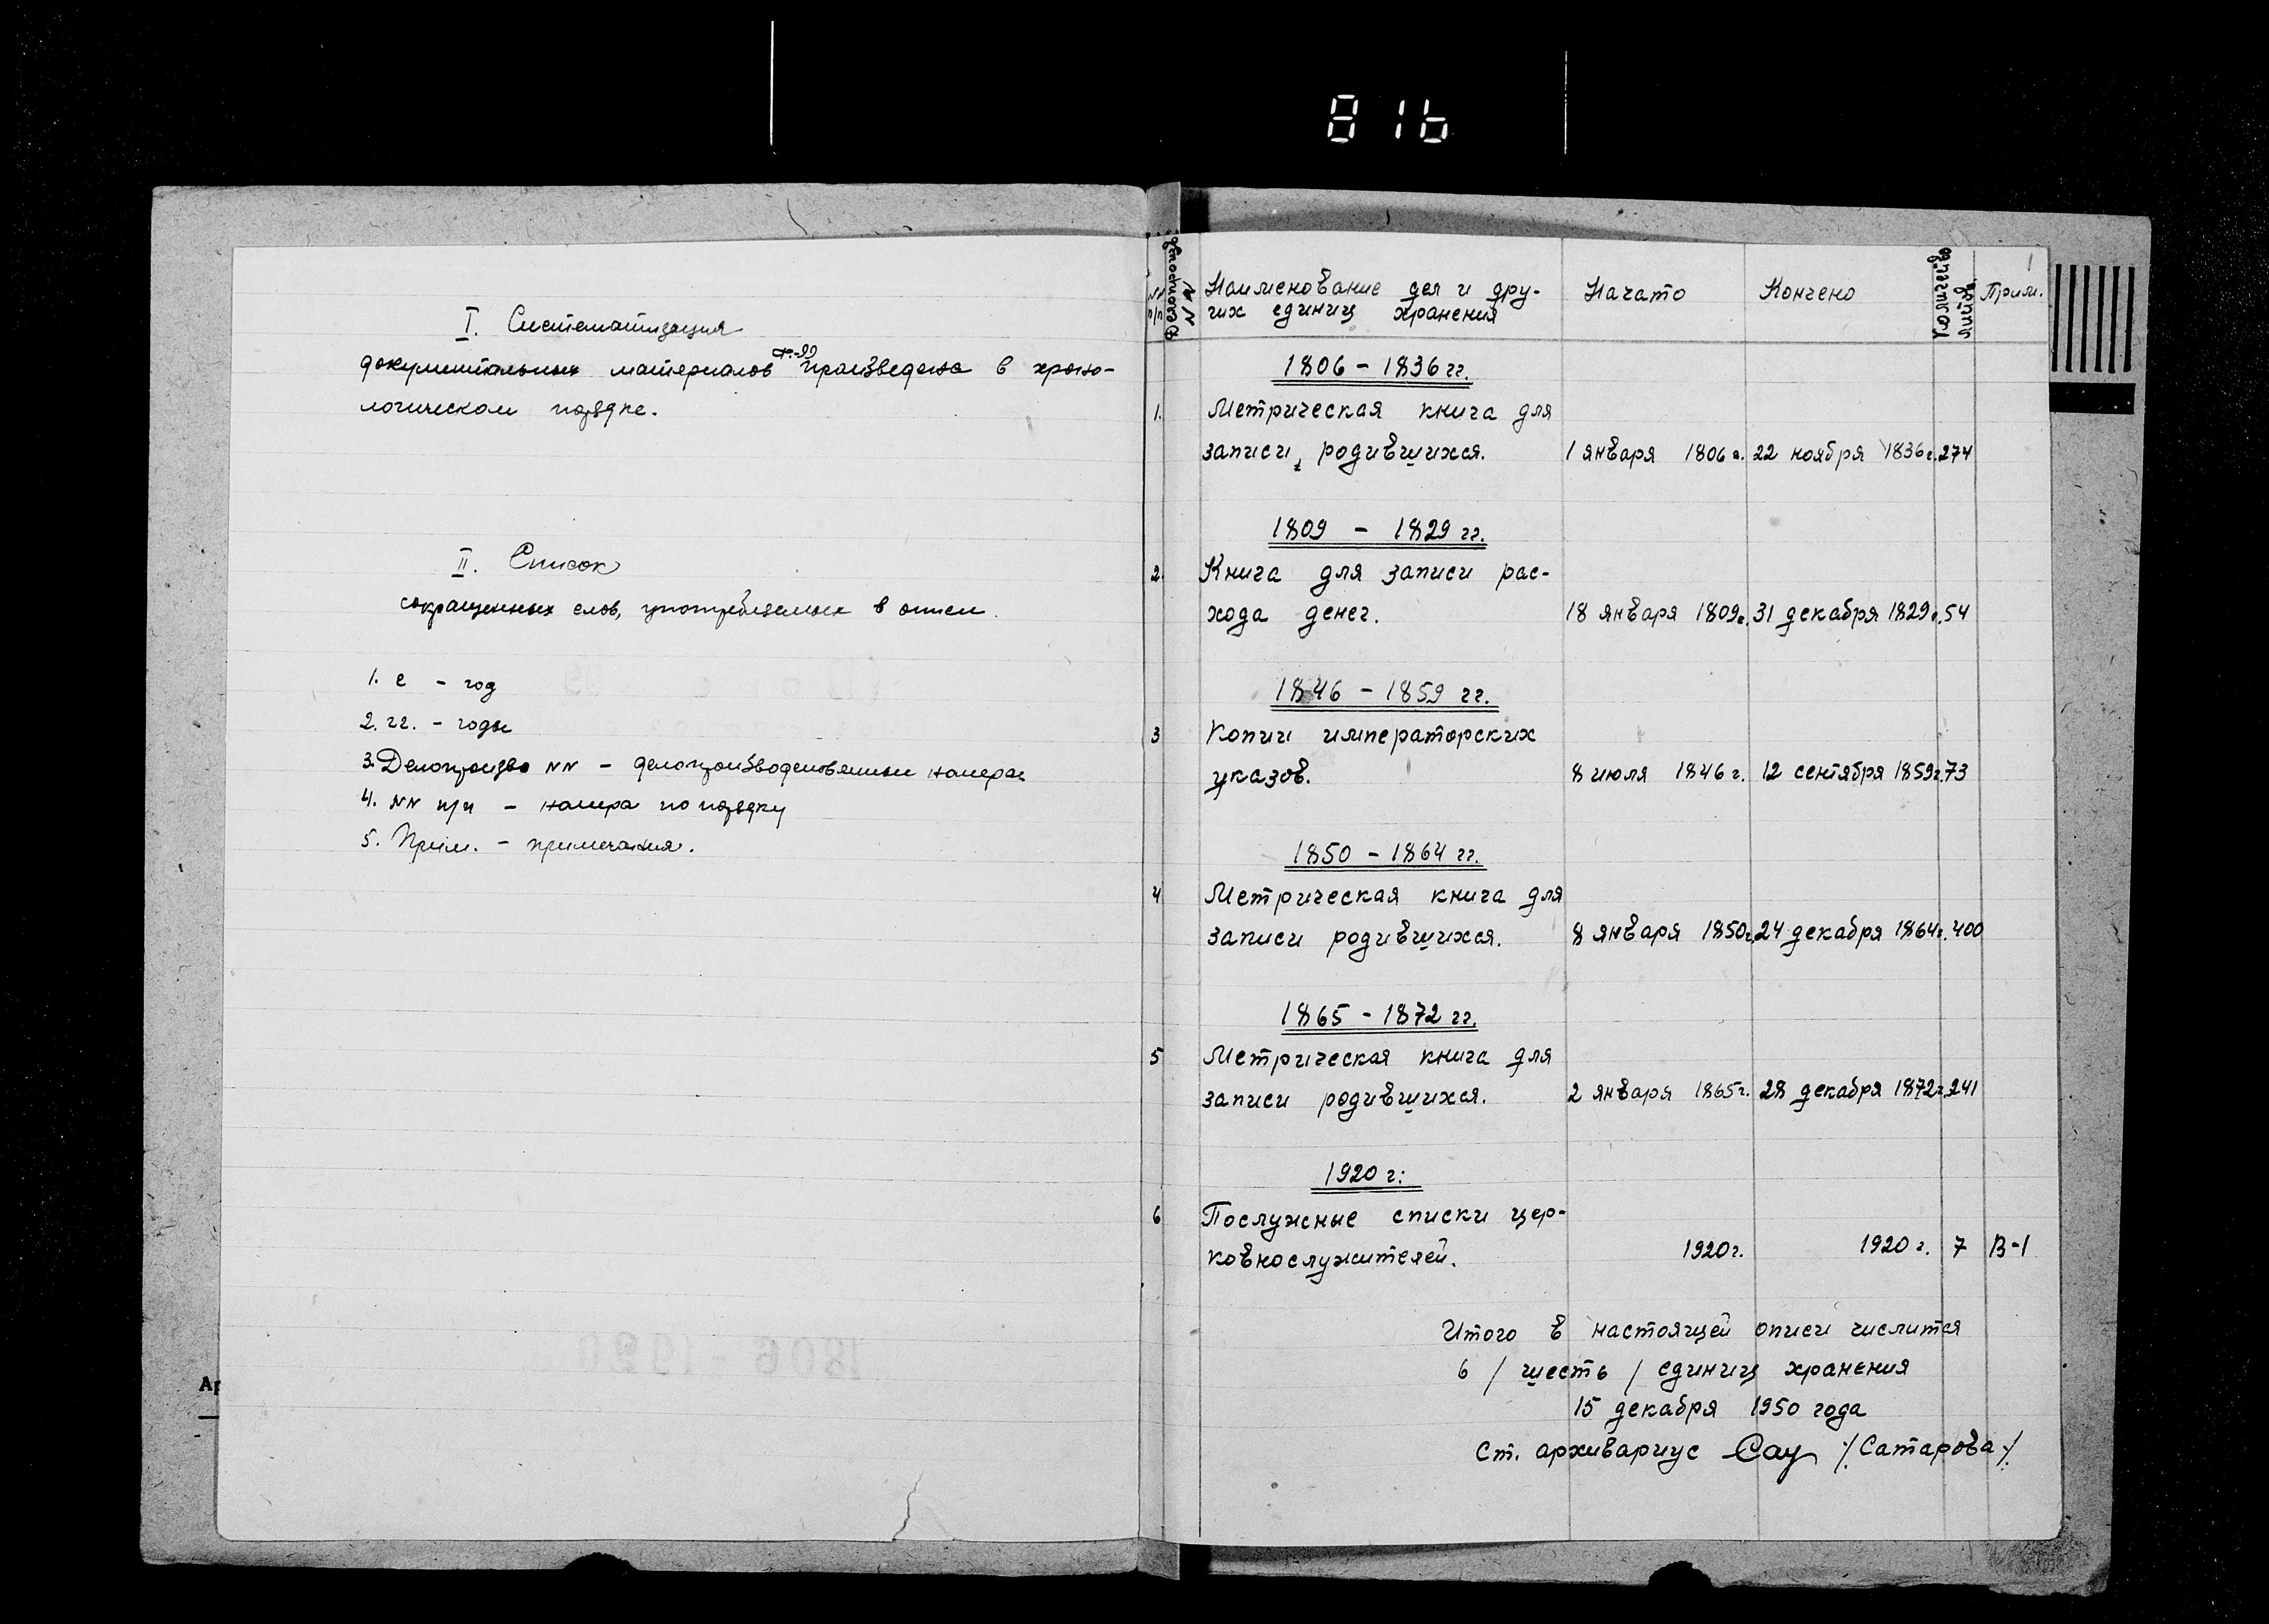 816
I. Систематизация
документальных материалов ф-99 произведена в хроно-
логическом порядке.
II. Список
сокращенных слов, употребляемых в описи.
1. г - год
2. гг. - годы
3. Делопроизво NN - делопроизводственные номера
4. NN п/п - номера по порядку
5. Прим. - примечания.
Ар
1
NN п/п
NN
Наименование дел и дру-
гих единиц хранения
Начато
Кончено
Количество листов
Прим.
1806 - 1836 гг.
1. Метрическая книга для
записи родившихся. 1 января 1806 г. 22 ноября 1836 г. 274
1809 - 1829 гг.
2. Книга для записи рас-
хода денег. 18 января 1809г. 31 декабря 1829г. 54
1846 - 1859 гг.
3 Копии императорских
указов. 8 июля 1846 г. 12 сентября 1859г. 73
1850 - 1864 гг.
4 Метрическая книга для
записи родившихся. 8 января 1850г. 24 декабря 1864г. 400
1865 - 1872 гг.
5 Метрическая книга для
записи родившихся. 2 января 1865г. 28 декабря 1872г. 241
1920 г.
6 Послужные списки цер-
ковнослужителей. 1920г. 1920 г. 7 В-1
Итого в настоящей описи числится
6 / шесть / единиц хранения
15 декабря 1950 года
Ст. архивариус Сат /Сатарова/